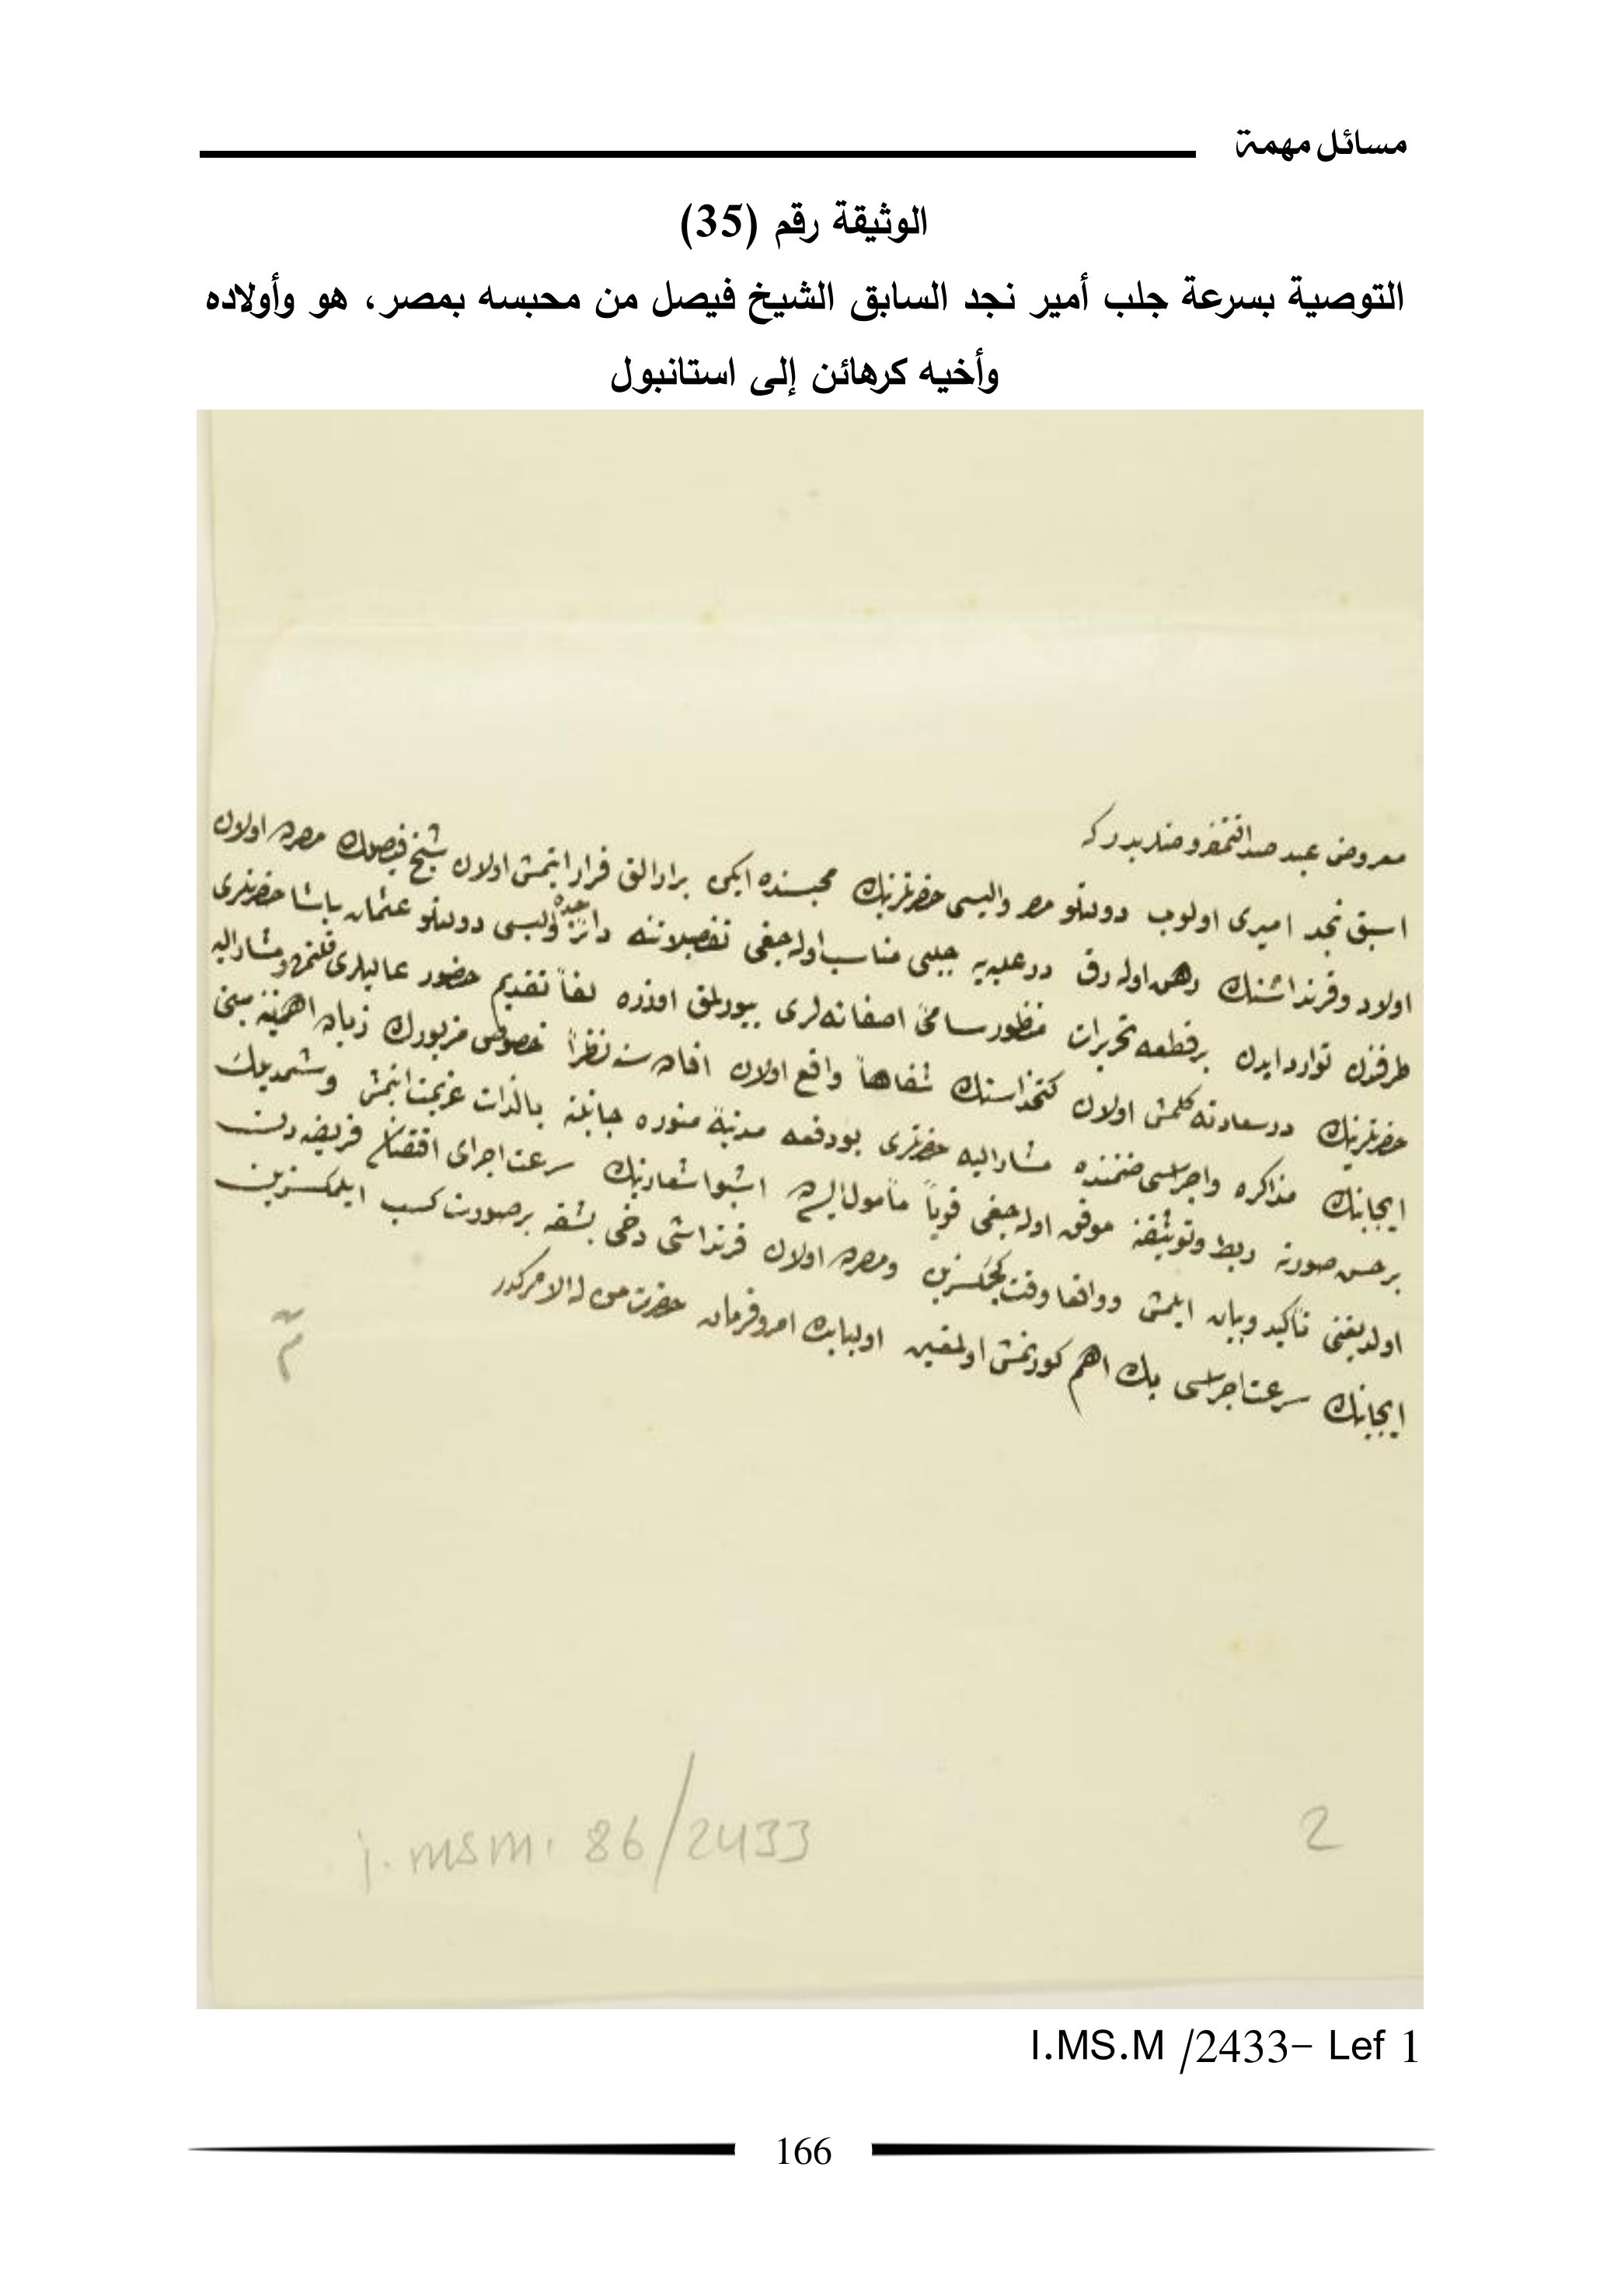 مسائل مهمة
الوثيقة رقم (35)
التوصية بسرعة جلب أمير نجد السابق الشيخ فيصل من محبسه بمصر، هو وأولاده
وأخيه كرهائن إلى استانبول
معروض
اسبق نجد اميرى اولوب دولتلو مصر واليسى حضرتلرينك محبسنده ايكن بر ارالق فرار ايتمش اولان شيخ فيصلك مصرده اولان
اولاد وقرنداشنك رهن اوله رق درعليه يه جلبى مناسب اوله جغى تفصيلاتنه دائر جده واليسى دولتلو عثمان پاشا حضرتلرى
طرفندن توارد ايدن برقطعه تحريرات منظور سامئ اصفانه لرى بيورلمق اوزره لفاً تقديم حضور عاليلرى قلنمش ومشاراليه
حضرتلرينك درسعادته كلمش اولان كتخداسنك شفاهاً واقع اولان افاده سنه نظراً خصوص مزبورك زياده اهميتنه مبنى
ايجابنك مذاكره واجراسى ضمننده مشاراليه حضرتلرى بودفعه مدينۀ منوره جانبنه بالذات عزيمت ايتمش وشمديلك
بر حسن صورته ربط وتوثيقنه موفق اوله جغى قوياً مأمول ايسه ده اشبو اشعارينك سرعت اجراى اقتضاسى فريضه دن
اولديغنى تأكيد وبيان ايلمش وواقعا وقت كچمكسزين ومصرده اولان قرنداشى دخى بشقه بر صورت كسب ايلمكسزين
ايجابنك سرعت اجراسى پك اهم كورنمش اولمغين اولبابده امر وفرمان حضرت من له الامركدر
م
2
İ. MSM. 86/2433
I.MS.M /2433– Lef 1
166